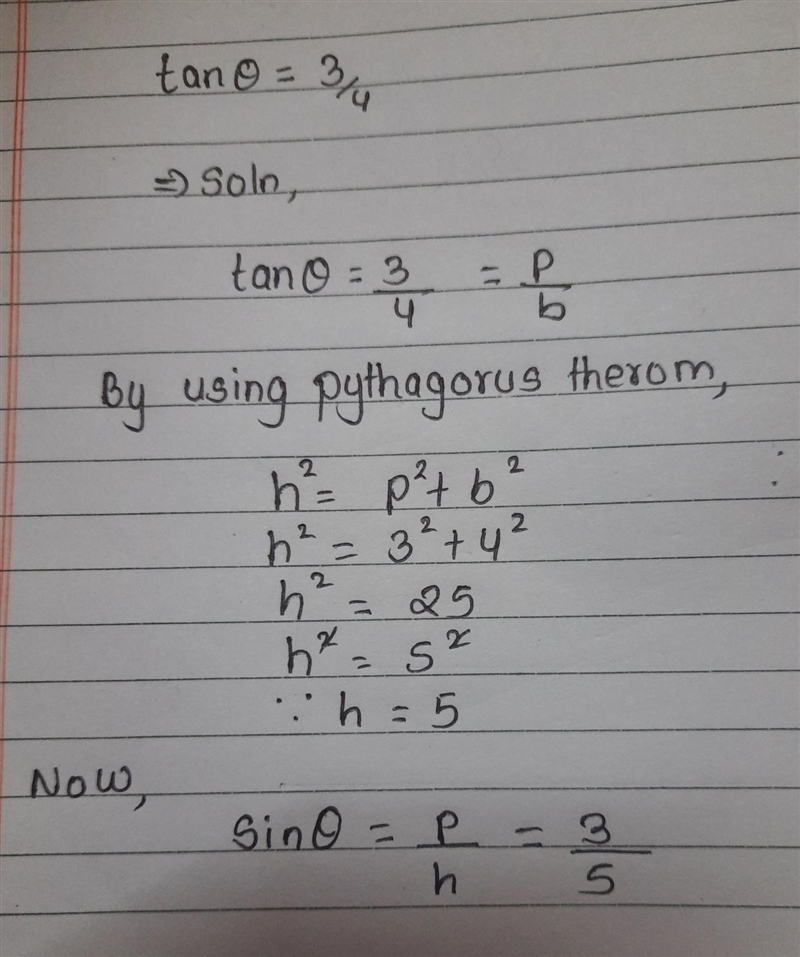 tanθ = 3/4
⇒ Soln,
tanθ = 3/4 = P/b
By using pythagorus therom,
h² = p² + b²
h² = 3² + 4²
h² = 25
h² = 5²
∵ h = 5
Now,
sinθ = P/h = 3/5